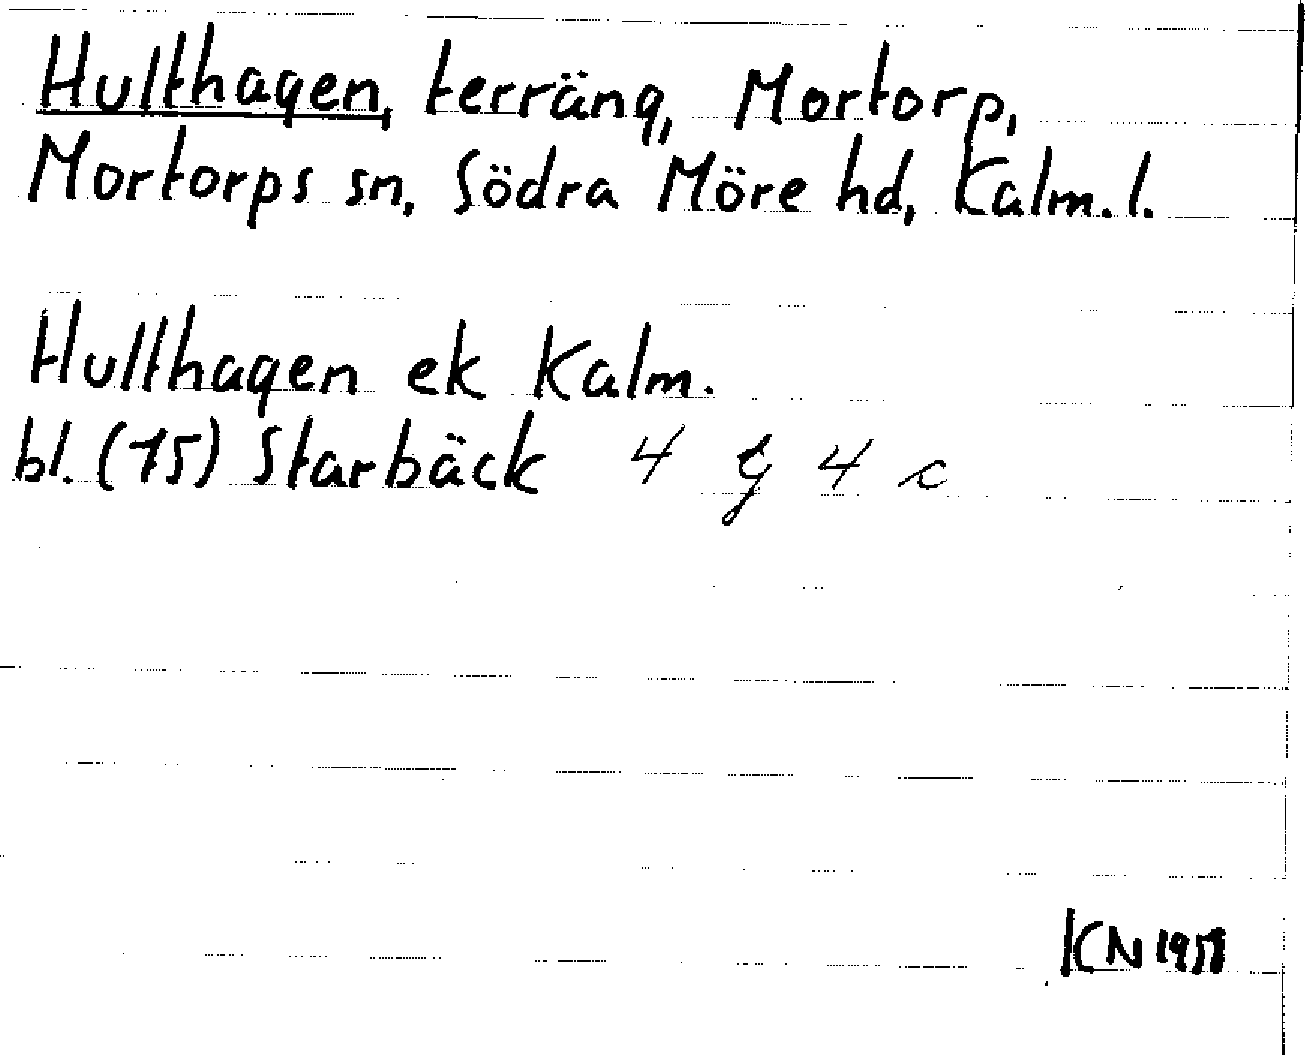 Hulthagen, terräng, Mortorp,
Mortorps sn, Södra Möre hd, Kalm. l.
Hulthagen ek Kalm.
bl. (15) Starbäck 4 G 4 c
KN